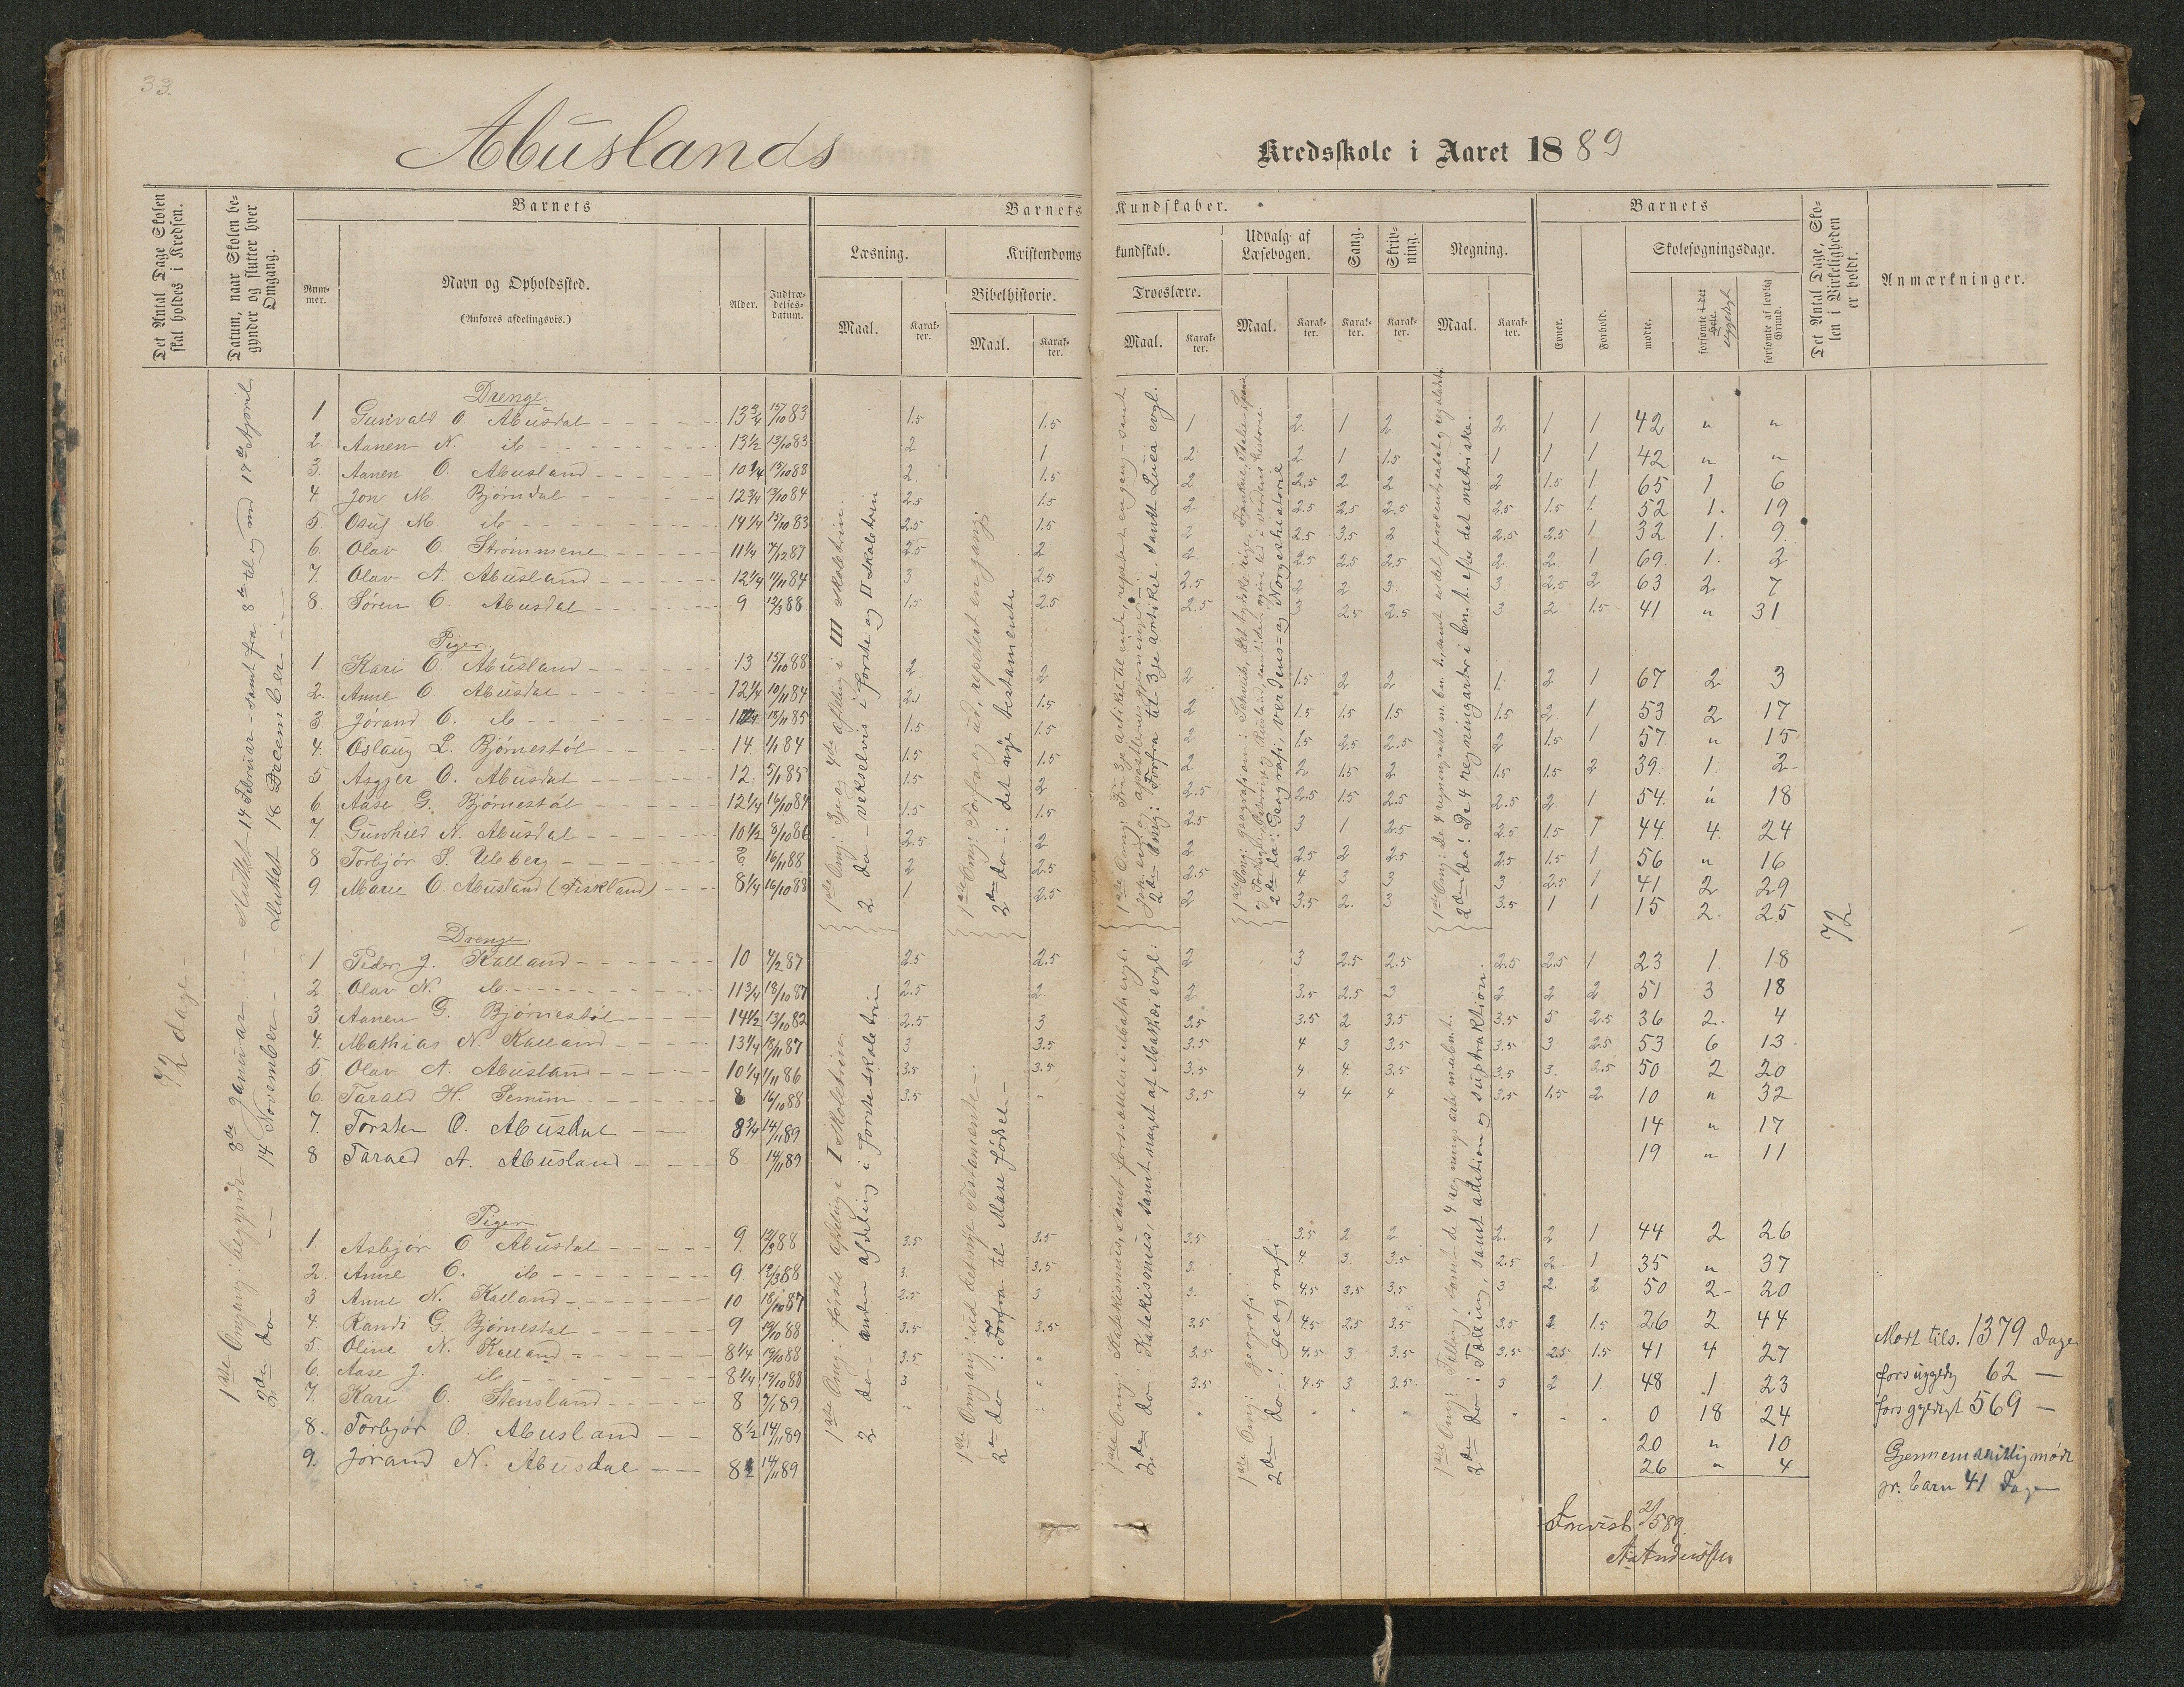 33.
Abuslands
Kredsskole i Aaret 1889
Det Antal Dage Skolen skal holdes i Kredsen.
Datum, naar Skolen begynder og slutter hver Omgang.
Barnets
Nummer.
Navn og Opholdssted.
(Anføres afdelingsvis.)
Alder.
Indtrædelsesdatum.
Barnets Kundskaber.
Læsning.
Maal.
Karakter.
Kristendomskundskab.
Bibelhistorie.
Maal.
Karakter.
Troeslære.
Maal.
Karakter.
Udvalg af Læsebogen.
Maal.
Karakter.
Sang.
Karakter.
Skrivning.
Karakter.
Regning.
Maal.
Karakter.
Barnets
Evner.
Forhold.
Skolesøgningsdage.
mødte,
forsømte i det Hele. ugyldigt
forsømte af lovlig Grund.
Det Antal Dage, Skolen i Virkeligheden er holdt.
Anmærkninger.
72 dage
1ste Omgang: begyndt 8de Januar — sluttet 14 Februar — samt fra 8de til og med 17de April
2den do — 14 November — sluttet 18 December
Drenge.
1 Gunvald O. Abusdal 13 3/4 15/10 83 1.5 1.5 1 2. 1 2 2. 1 1 42 " "
2. Aanen N. ib 13 1/2 13/10 83 2 1 2 2 1 1.5 1 1 1 42 " "
3. Aanen O. Abusland 10 3/4 13/10 88 2 1.5 2 2.5 2 2 2 1.5 1 65 1 6
4. Jon M. Bjørndal 12 3/4 13/10 84 2.5 1.5 2 2.5 2.5 2.5 2.5 1.5 1 52 1. 19
5 Osuf M ib 14 1/4 15/10 83 2.5 1.5 2 2.5 3.5 2 2.5 2.5 1 32 1. 9.
6. Olav O. Strømmene 11 1/4 7/12 87 2.5 2 2 2.5 2.5 2.5 2 2 1 69. 1. 2
7. Olav A. Abusland 12 1/4 11/11 84 3 2.5 2.5 2 2 3. 3 2.5 2 63 2 7
8. Søren O. Abusdal 9 12/3 88 1.5 2.5 2.5 3 2.5 2.5 3 2 1.5 41 " 31
Piger.
1. Kari O. Abusland 13 15/10 88 2 2 2 1.5 2 2 1. 2 1 67 2 3
2. Anne O. Abusdal 12 1/4 10/11 84 2. 1.5 2 1.5 1.5 1.5 1.5 2 1 53 2 17
3 Jorand O. ib 13/11 85 1.5 1.5 2 1.5 2.5 2.5 2 1.5 1 57. " 15
4. Oslaug L. Bjørnestøl 14 1/1 84 1.5 1.5 2 2 1.5 2 1.5 1.5 2 39. 1. 2
5 Asgjer O. Abusdal 12. 5/1 85 1.5 2 2.5 2.5 1.5 2.5 2.5 2 1 54. " 18
6. Aase G. Bjørnestøl 12 1/4 16/10 84 1.5 1.5 2.5 3 1 2.5 2.5 1.5 1 44. 4. 24
7. Gunhild N. Abusdal 10 1/2 8/10 86 2.5 2 2 2.5 2 2.5 2.5 1.5 1 56 " 16
8 Torbjør S. Uleberg 16/11 88 2 2.5 2.5 4 3 3 3 2.5 1 41 2 29
9. Marie O. Abusland (Fiskland) 8 1/4 16/10 88 1 2.5 2 3.5 2. 3 3.5 1 1 15 2. 25
1ste Omg: 3je og 4de afdeling i III skoletrin
2 do — vekselvis i første og II skoletrin
1ste Omg: Forfra og ud, repetert en gang.
2den do —: det nye testamente
2den Omg: Forfra til 3je artikel. samt Luca evgl.
2den do: Geografi, Verdens- og Norgeshistorie
2den do: De 4 regningsarter i ben. t. efter det metriske.
72
Drenge.
1. Peder J. Kalland 10 4/2 87 2.5 2.5 2 3 2.5 2.5 2.5 2.5 1 23 1. 18
2. Olav N. ib. 11 3/4 18/10 87 2.5 2. 2 3.5 2.5 3 2 2 2 51 3 18
3 Aanen G. Bjørnestøl 14 1/2 13/10 82 2.5 3 3.5 3.5 2 3.5 3.5 3 2.5 36 2. 4
4. Mathias N. Kalland 13 1/4 18/11 87 3 3.5 3.5 4 3 3.5 3.5 3 2.5 53 6 13
5 Olav A. Abusland 10 1/4 1/11 86 3.5 3.5 3.5 4 4. 3.5 3.5 3. 2.5 50 2 20
6. Tarald H. Semmen 8 16/10 88 3.5 " 3.5 4 4 4 3.5 1.5 2 10 " 32
7. Torsten O. Abusdal 8 3/4 14/11 89 14 " 17
8 Tarald A. Abusland 8 14/11 89 19 " 11
Piger.
1. Asbjør O. Abusdal 9 12/3 88 3.5 3.5 3.5 3.5 2 2 2. 2 1 44 2 26
2. Anne O. ib 9. 12/3 88 3. 3.5 3 4 3 3.5 2.5 2 1 35 " 37
3 Anne N. Kalland 10 18/10 87 2.5 3 3 4.5 3.5 3.5 3 2. 2 50 2 20
4. Randi G. Bjørnestøl 9 19/10 88 3.5 3.5 3.5 4.5 2.5 3.5 3.5 2 1.5 26 2 44
5. Oline N. Kalland 8 1/4 19/10 88 3.5 " 3.5 4.5 3 3.5 3.5 2.5 1.5 41 4 27
6. Aase J. ib 8 1/4 19/10 88 3 " 3.5 4.5 3 3.5 3 2 1 48 1 23
7. Kari O. Stensland 8 7/1 89 " " " " " " " " " 0 18 24
8. Torbjør O. Abusland 8 1/2 14/11 89 20 " 10
9. Jørand N. Abusdal 14/11 89 26 " 4
1ste Omg: første afdeling i I skoletrin
2 do — anden afdeling i første skoletrin
1ste Omgang: ud det nye Testamente
2den do: Forfra til Mose fødsel
1ste Omg: Katekismus, samt
2den do: Katekismus, samt noget af Mathæi evgl:
1ste Omg: geografi
2den do: geografi
1ste Omg: Telling, samt de 4 regningsarter
2den do: Tælling, samt adition og suptraktion.
Mødt tils. 1379 Dage
fors ugyldig 62 —
fors gyldigt 569 —
Gjennemsnitlig mødt
pr. barn 41 Dage
Forevist 2/5 89.
A. Anderssen